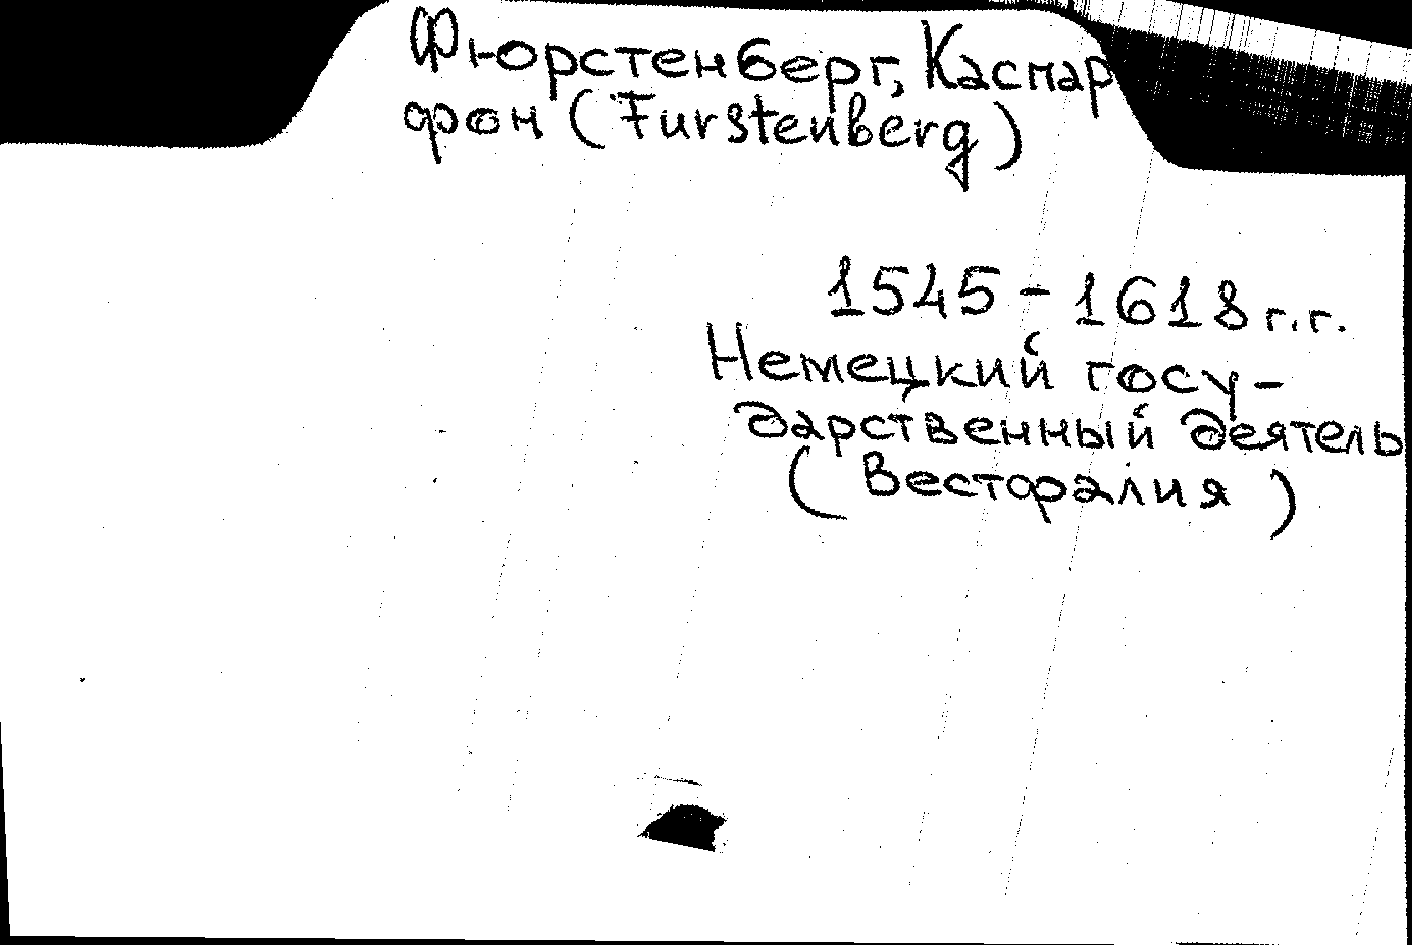 Фюрстенберг, Каспар
фон (Furstenberg)
1545 - 1618 г.г.
Немецкий госу-
дарственный деятель
(Вестфалия)